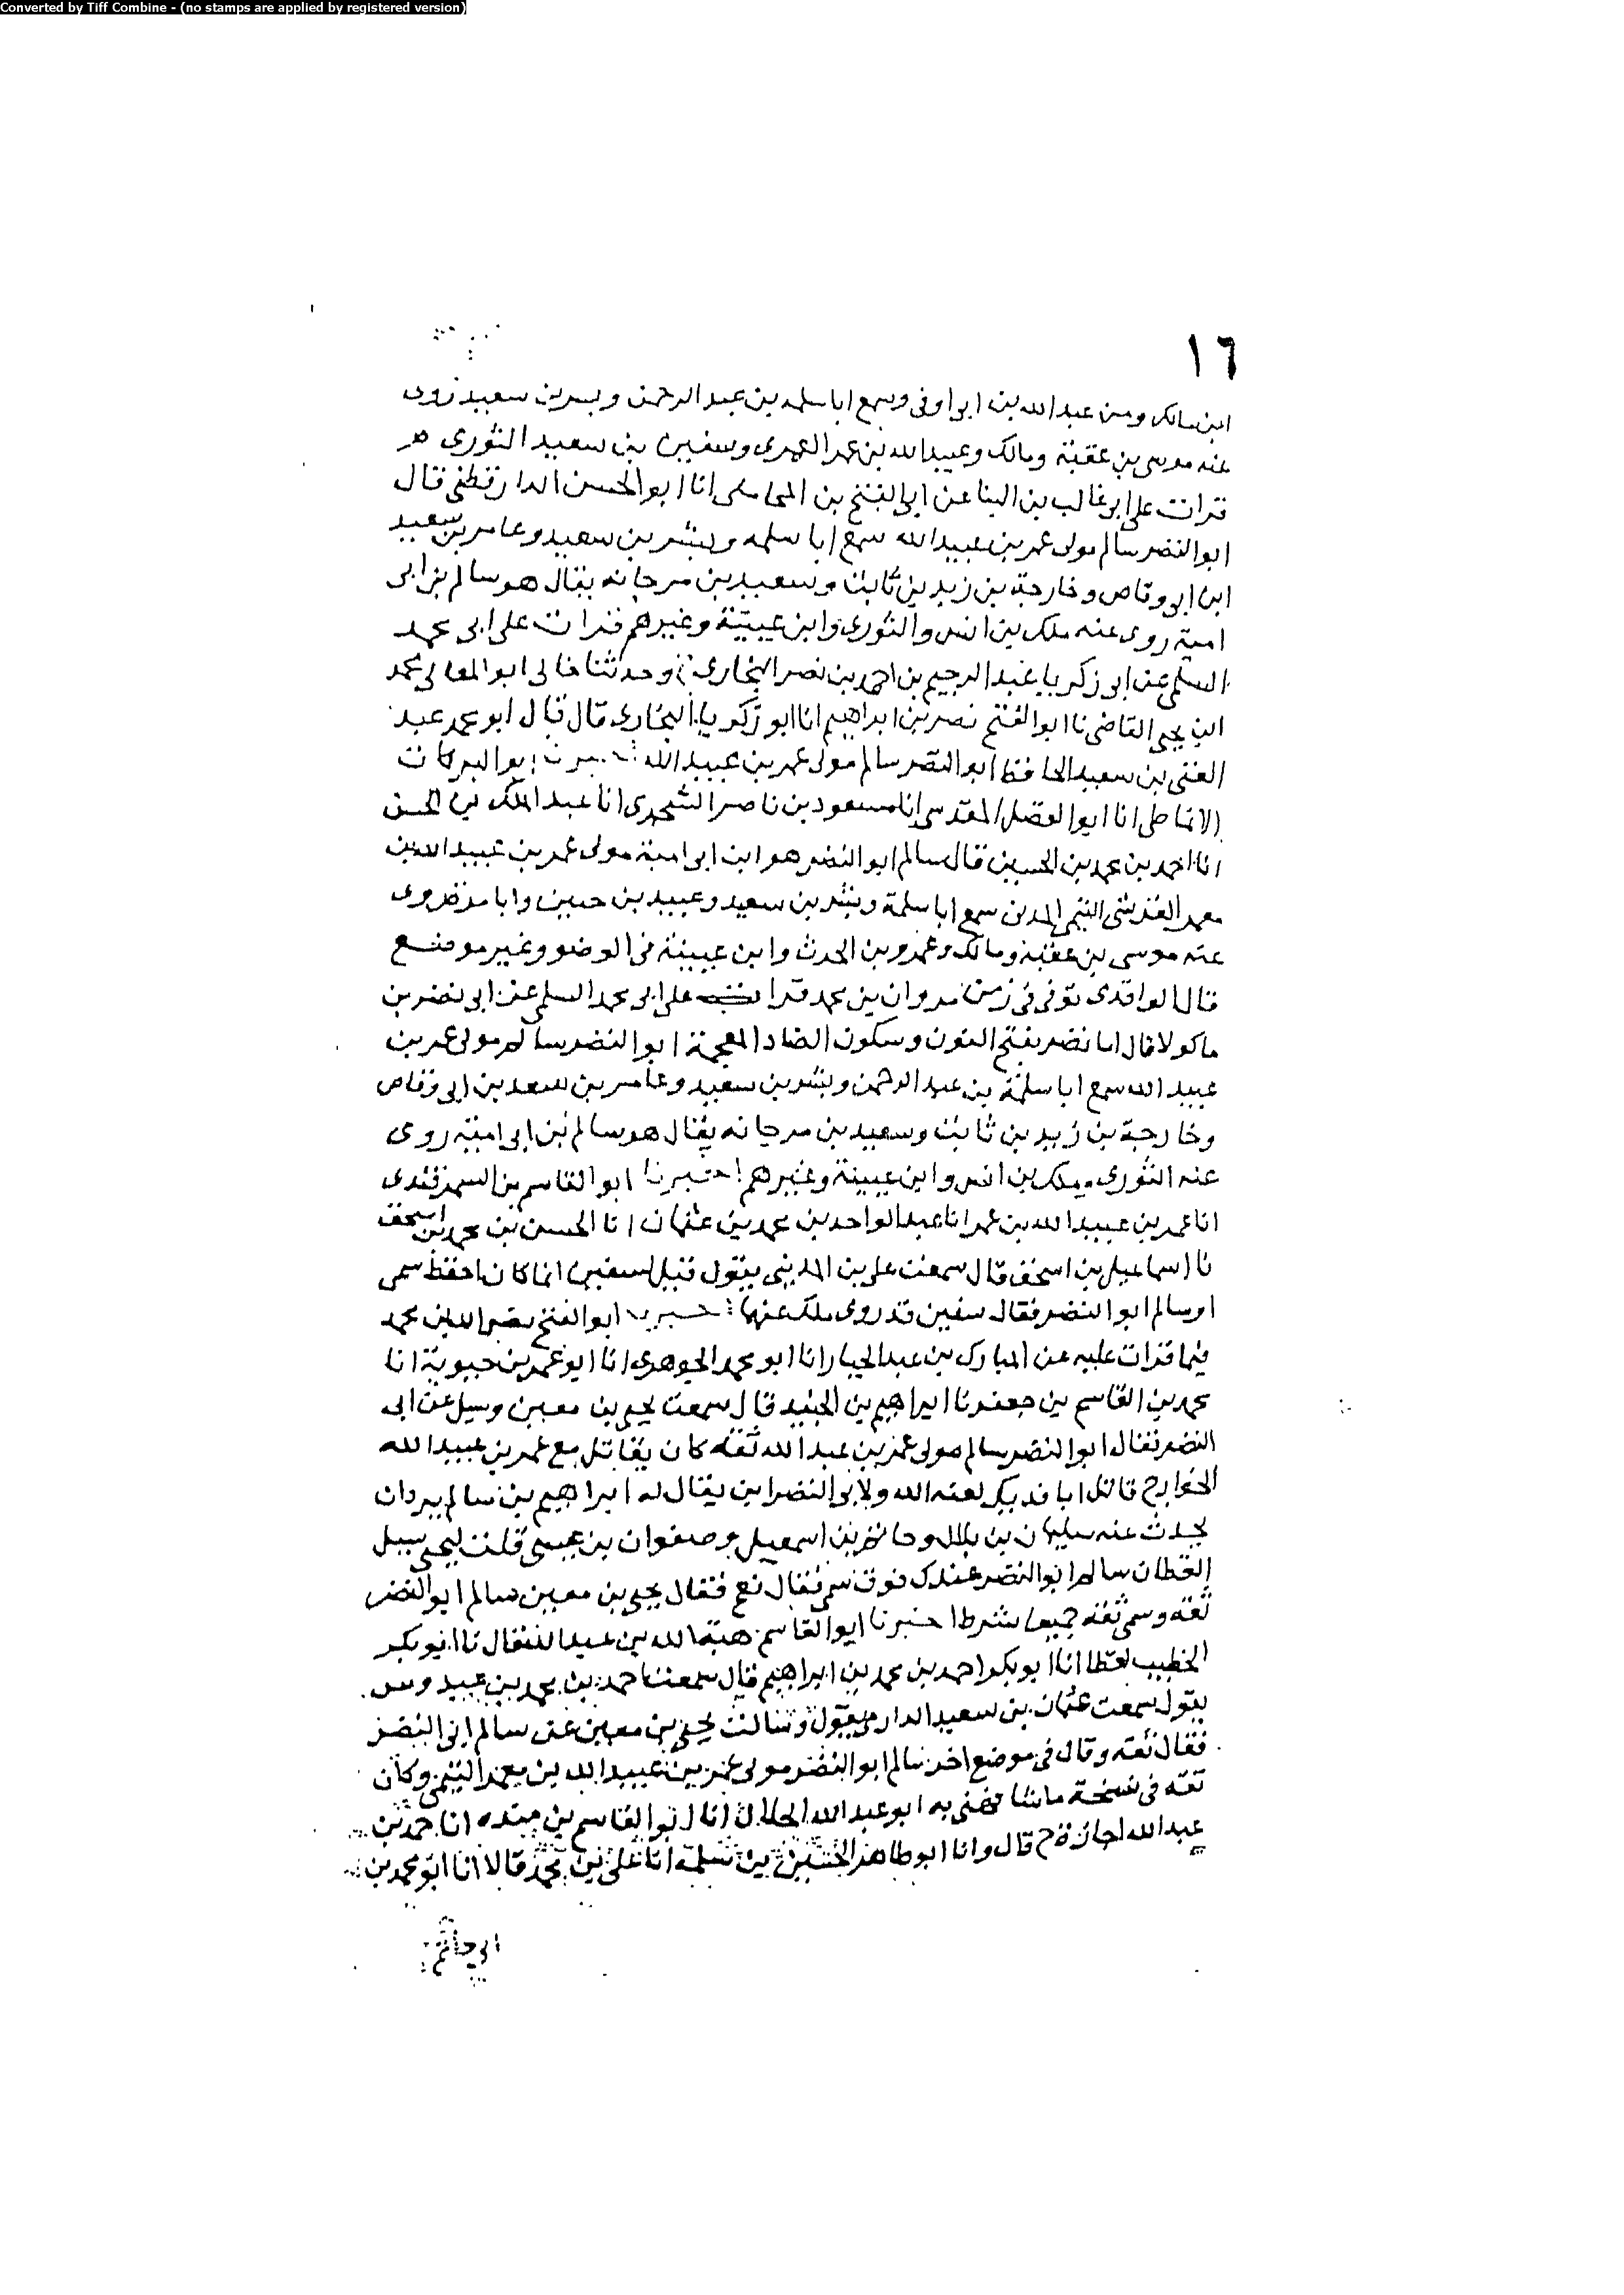 Converted by Tiff Combine - (no stamps are applied by registered version)
١٦
ابن مالك ومن عبد الله بن ابي اوفى وسمع ابا سلمه بن عبد الرحمن وبسر بن سعيد روى
عنه موسى بن عقبة ومالك وعبيد الله بن عمر العمرى وسفين بن سعيد الثورى
قرات على ابو غالب بن البنا عن ابي الفتح بن المحاملى انا ابو الحسن الدارقطنى قال
ابو النضر سالم مولى عمر بن عبيد الله سمع ابا سلمه وبشر بن سعيد وعامر بن سعيد
ابن ابى وقاص وخارجة بن زيد بن ثابت وسعيد بن مرجانه يقال هو سالم بن ابى
امية روى عنه ملك بن انس والثورى وابن عيينة وغيرهم قرات على ابى محمد
السلمى عن ابى زكريا عبد الرحيم بن احمد بن نصر البخارى ح وحدثنا خالى ابو المعالى محمد
ابن يحيى القاضى نا ابو الفتح نصر بن ابراهيم انا ابو زكريا البخارى قال قال ابو محمد عبد
الغنى بن سعيد الحافظ ابو النضر سالم مولى عمر بن عبيد الله ابو البركات
الانماطى انا ابو الفضل المقدسى انا مسعود بن ناصر الشجرى انا عبد الملك بن الحسن
انا احمد بن محمد بن الحسين قال سالم ابو النضر هو ابن ابى امية مولى عمر بن عبيد الله بن
معمر القرشى التيمى المدنى سمع ابا سلمة وبشر بن سعيد وعبيد بن حنين وابا مره روى
عنه موسى بن عقبة ومالك وعمرو بن الحرث وابن عيينة فى الوضو وغير موضع
قال الواقدى توفى فى زمن مروان بن محمد قرات على ابى محمد السلمى عن ابى نصر بن
ماكولا قال اما نضر بفتح النون وسكون الضاد المعجمة ابو النضر سالم مولى عمر بن
عبيد الله سمع ابا سلمة بن عبد الرحمن وبشر بن سعيد وعامر بن سعد بن ابى وقاص
وخارجة بن زيد بن ثابت وسعيد بن مرجانه يقال هو سالم بن ابى امية روى
عنه الثورى وملك بن انس وابن عيينة وغيرهم اخبرنا ابو القاسم بن السمرقندى
انا عمر بن عبيد الله بن عمر انا عبد الواحد بن محمد بن عثمان انا الحسن بن محمد بن اسحق
نا اسماعيل بن اسحق قال سمعت على بن المدينى يقول قيل لسفين ايما كان احفظ سمى
او سالم ابو النضر فقال سفين قد روى ملك عنهما اخبرنا ابو الفتح نصر الله بن محمد
فيما قرات عليه عن المبارك بن عبد الجبار انا ابو محمد الجوهرى انا ابو عمر بن حيوية انا
محمد بن القاسم بن جعفر نا ابراهيم بن الجنيد قال سمعت يحيى بن معين وسيل عن ابى
النضر فقال ابو النضر سالم مولى عمر بن عبد الله ثقه كان يقاتل مع عمر بن عبيد الله
الخوارج قاتل ابا فديك لعنه الله ولابى النضر ابن يقال له ابراهيم بن سالم بردان
يحدث عنه سليمان بن بلال وحاتم بن اسمعيل وصفوان بن عيسى قلت ليحيى سيل
القطان سالم ابو النضر عندك فوق سمى فقال نعم فقال يحيى بن معين سالم ابو النضر
ثقة وسمى ثقة جميعا اخبرنا ابو القاسم هبة الله بن عبد الله قال نا ابو بكر
الخطيب لفظا انا ابو بكر احمد بن محمد بن ابراهيم قال سمعت احمد بن محمد بن عبدوس
يقول سمعت عثمان بن سعيد الدارمى يقول وسالت يحيى بن معين عن سالم ابى النضر
فقال ثقه وقال فى موضع اخر سالم ابو النضر مولى عمر بن عبيد الله بن معمر التيمى وكان
ثقه فى نسخة ما شافهنى به ابو عبد الله الخلال انا ابو القاسم بن منده انا حمد بن
عبد الله اجازة ح قال وانا ابو طاهر الحسين بن سلمة انا على بن محمد قالا انا ابو محمد بن
ابى حاتم